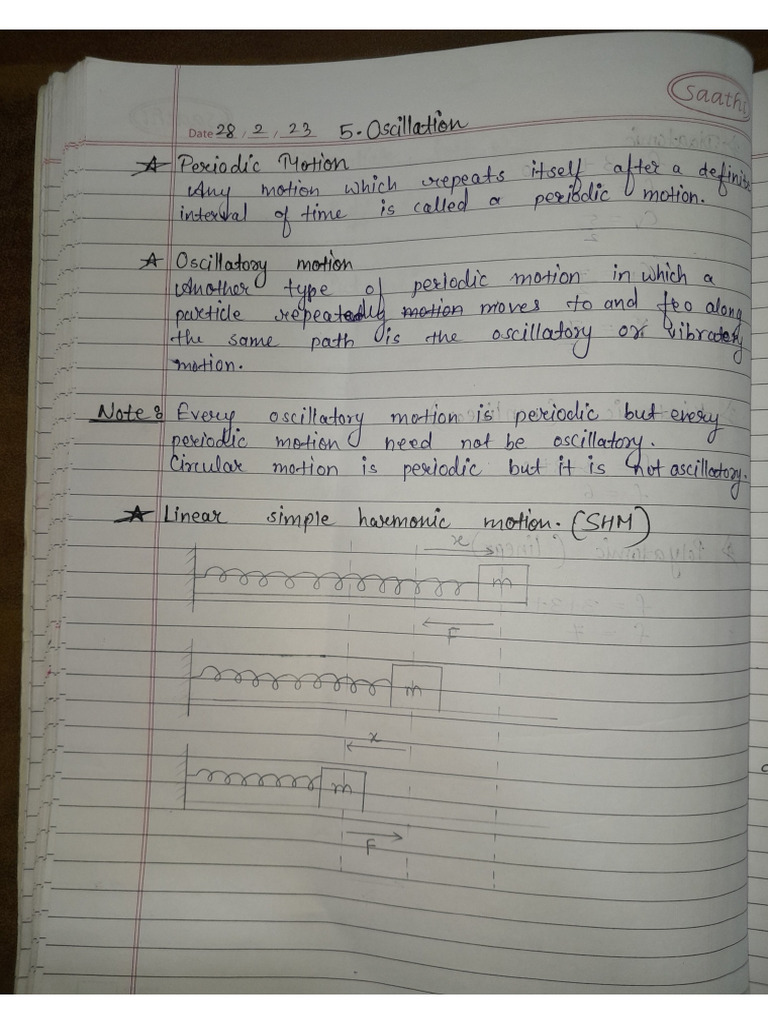 Saathi
Date 28, 2, 23 5. Oscillation
☆ Periodic Motion
Any motion which repeats itself after a definite
interval of time is called a periodic motion.
☆ Oscillatory motion
Another type of periodic motion in which a
particle repeatedly motion moves to and fro along
the same path is the oscillatory or vibratory
motion.
Note: Every oscillatory motion is periodic but every
periodic motion need not be oscillatory.
Circular motion is periodic but it is not oscillatory.
☆ Linear simple harmonic motion. (SHM)
x
m
F
m
x
m
F